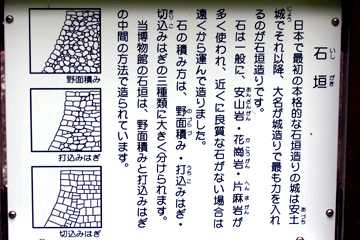 石垣
いし がき
日本で最初の本格的な石垣造りの城は安土
あづち
城でそれ以降、大名が城造りで最も力を入れ
じょう
るのが石垣造りです。
石は一般に、安山岩・花崗岩・片麻岩が
あんざんがん かこうがん へんまがん
多く使われ、近くに良質な石がない場合は
遠くから運んで造りました。
石の積み方は、野面積み・打込みはぎ・
のづらづ うちこ
切込みはぎの三種類に大きく分けられます。
きりこ
当博物館の石垣は、野面積みと打込みはぎ
の中間の方法で造られています。
野面積み
打込みはぎ
切込みはぎ